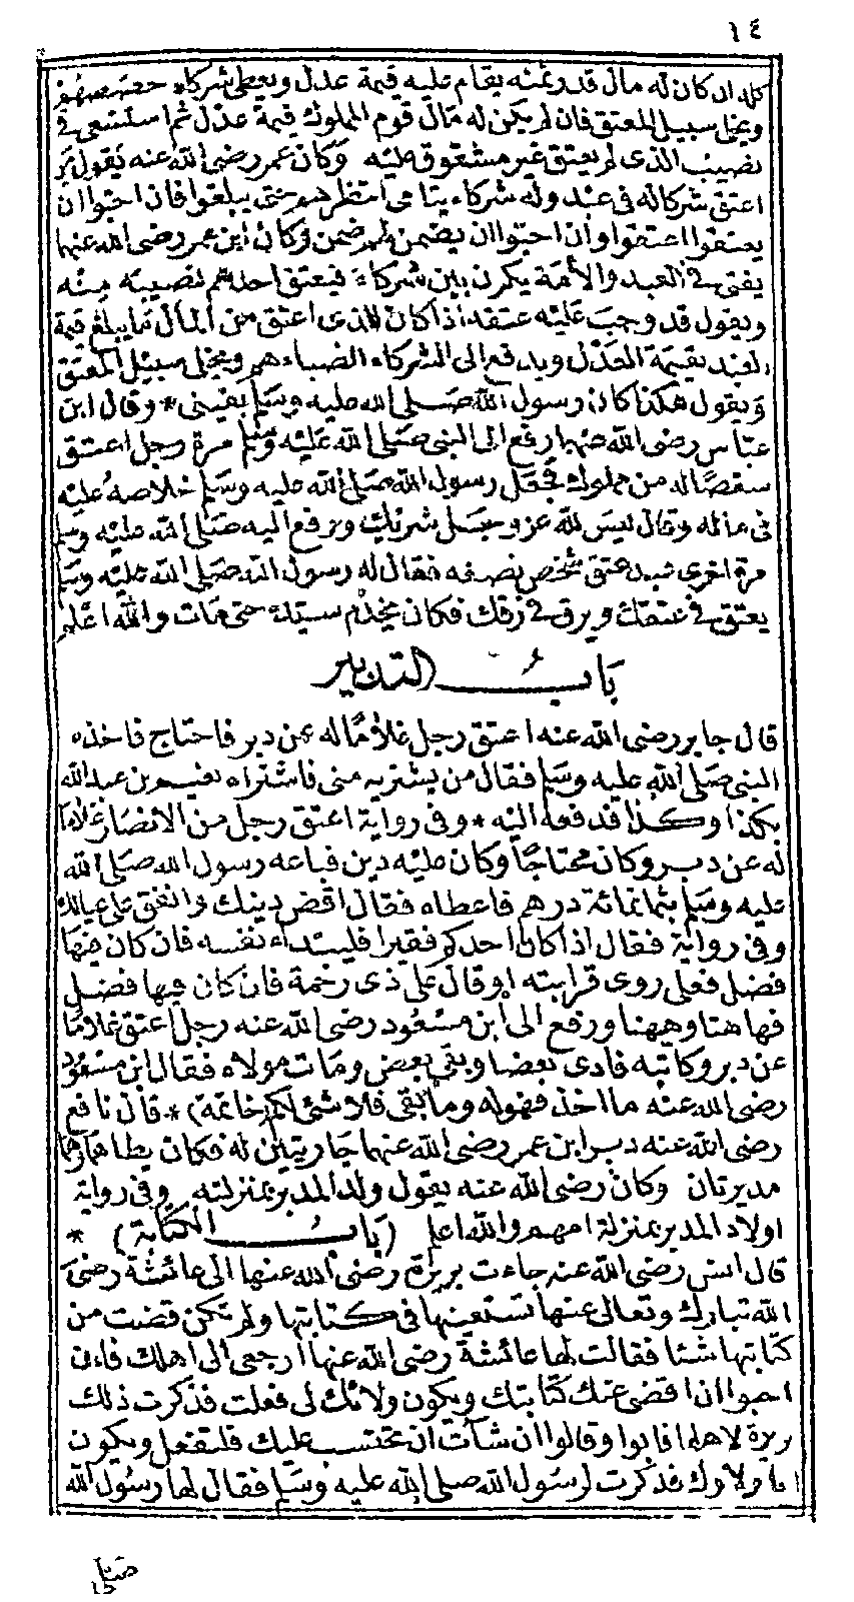 ١٤
كله ان كان له مال قدر ثمنه يقام عليه قيمة عدل ويعطى شركاؤه حصصهم
ويخلى سبيل المعتق فان لم يكن له مال قوم المملوك قيمة عدل ثم استسعى فى
نصيب الذى لم يعتق غير مشقوق عليه وكان عمر رضى الله عنه يقول من
اعتق شركا له فى عبد وله شركاء يتامى انتظر بهم حتى يبلغوا فان احبوا ان
يعتقوا اعتقوا وان احبوا ان يضمن لهم ضمن وكان ابن عمر رضى الله عنهما
يفتى فى العبد والأمة يكون بين شركاء فيعتق احدهم نصيبه منه
ويقول قد وجب عليه عتقه اذا كان للذى اعتق من المال ما يبلغ قيمة
العبد بقيمة العدل ويدفع الى الشركاء انصباءهم ويخلى سبيل المعتق
ويقول هكذا كان رسول الله صلى الله عليه وسلم يفتى * وقال ابن
عباس رضى الله عنهما رفع الى النبى صلى الله عليه وسلم مرة رجل اعتق
شقصا له من مملوك فجعل رسول الله صلى الله عليه وسلم خلاصه عليه
فى ماله وقال ليس لله عز وجل شريك ورفع اليه صلى الله عليه وسلم
مرة اخرى عتق شخص نصفه فقال له رسول الله صلى الله عليه وسلم
يعتق فى عتقك ويرق فى رقك فكان يخدم سيده حتى مات والله اعلم
باب التدبير
قال جابر رضى الله عنه اعتق رجل غلاما له عن دبر فاحتاج فاخذه
النبى صلى الله عليه وسلم فقال من يشتريه منى فاشتراه نعيم بن عبد الله
بكذا وكذا فدفعه اليه * وفى رواية اعتق رجل من الانصار غلاما
له عن دبر وكان محتاجا وكان عليه دين فباعه رسول الله صلى الله
عليه وسلم بثمانمائة درهم فاعطاه فقال اقض دينك وانفق على عيالك
وفى رواية فقال اذا كان احدكم فقيرا فليبتداء نفسه فان كان فيها
فضل فعلى ذوى قرابته او قال على ذى رحمة فان كان فيها فضل
فهاهنا وههنا ورفع الى ابن مسعود رضى الله عنه رجل اعتق غلاما
عن دبر وكاتبه فادى بعضا وبقى بعض ومات مولاه فقال ابن مسعود
رضى الله عنه ما اخذ فهو له وما بقى فلا شئ لكم (خاتمة) * قال نافع
رضى الله عنه دبر ابن عمر رضى الله عنهما جاريتين له فكان يطاهما وهما
مدبرتان وكان رضى الله عنه يقول ولد المدبر بمنزلته وفى رواية
اولاد المدبر بمنزلة امهم والله اعلم (باب الكتابة) *
قال انس رضى الله عنه جاءت بريرة رضى الله عنها الى عائشة رضى
الله تبارك وتعالى عنها تستعينها فى كتابتها ولم تكن قضت من
كتابتها شئا فقالت لها عائشة رضى الله عنها ارجعى الى اهلك فان
احبوا ان اقضى عنك كتابتك ويكون ولائك لى فعلت فذكرت ذلك
بريرة لاهلها فابوا وقالوا ان شأت ان تحتسب عليك فلتفعل ويكون
لنا ولاوك فذكرت لرسول الله صلى الله عليه وسلم فقال لها رسول الله
صلى